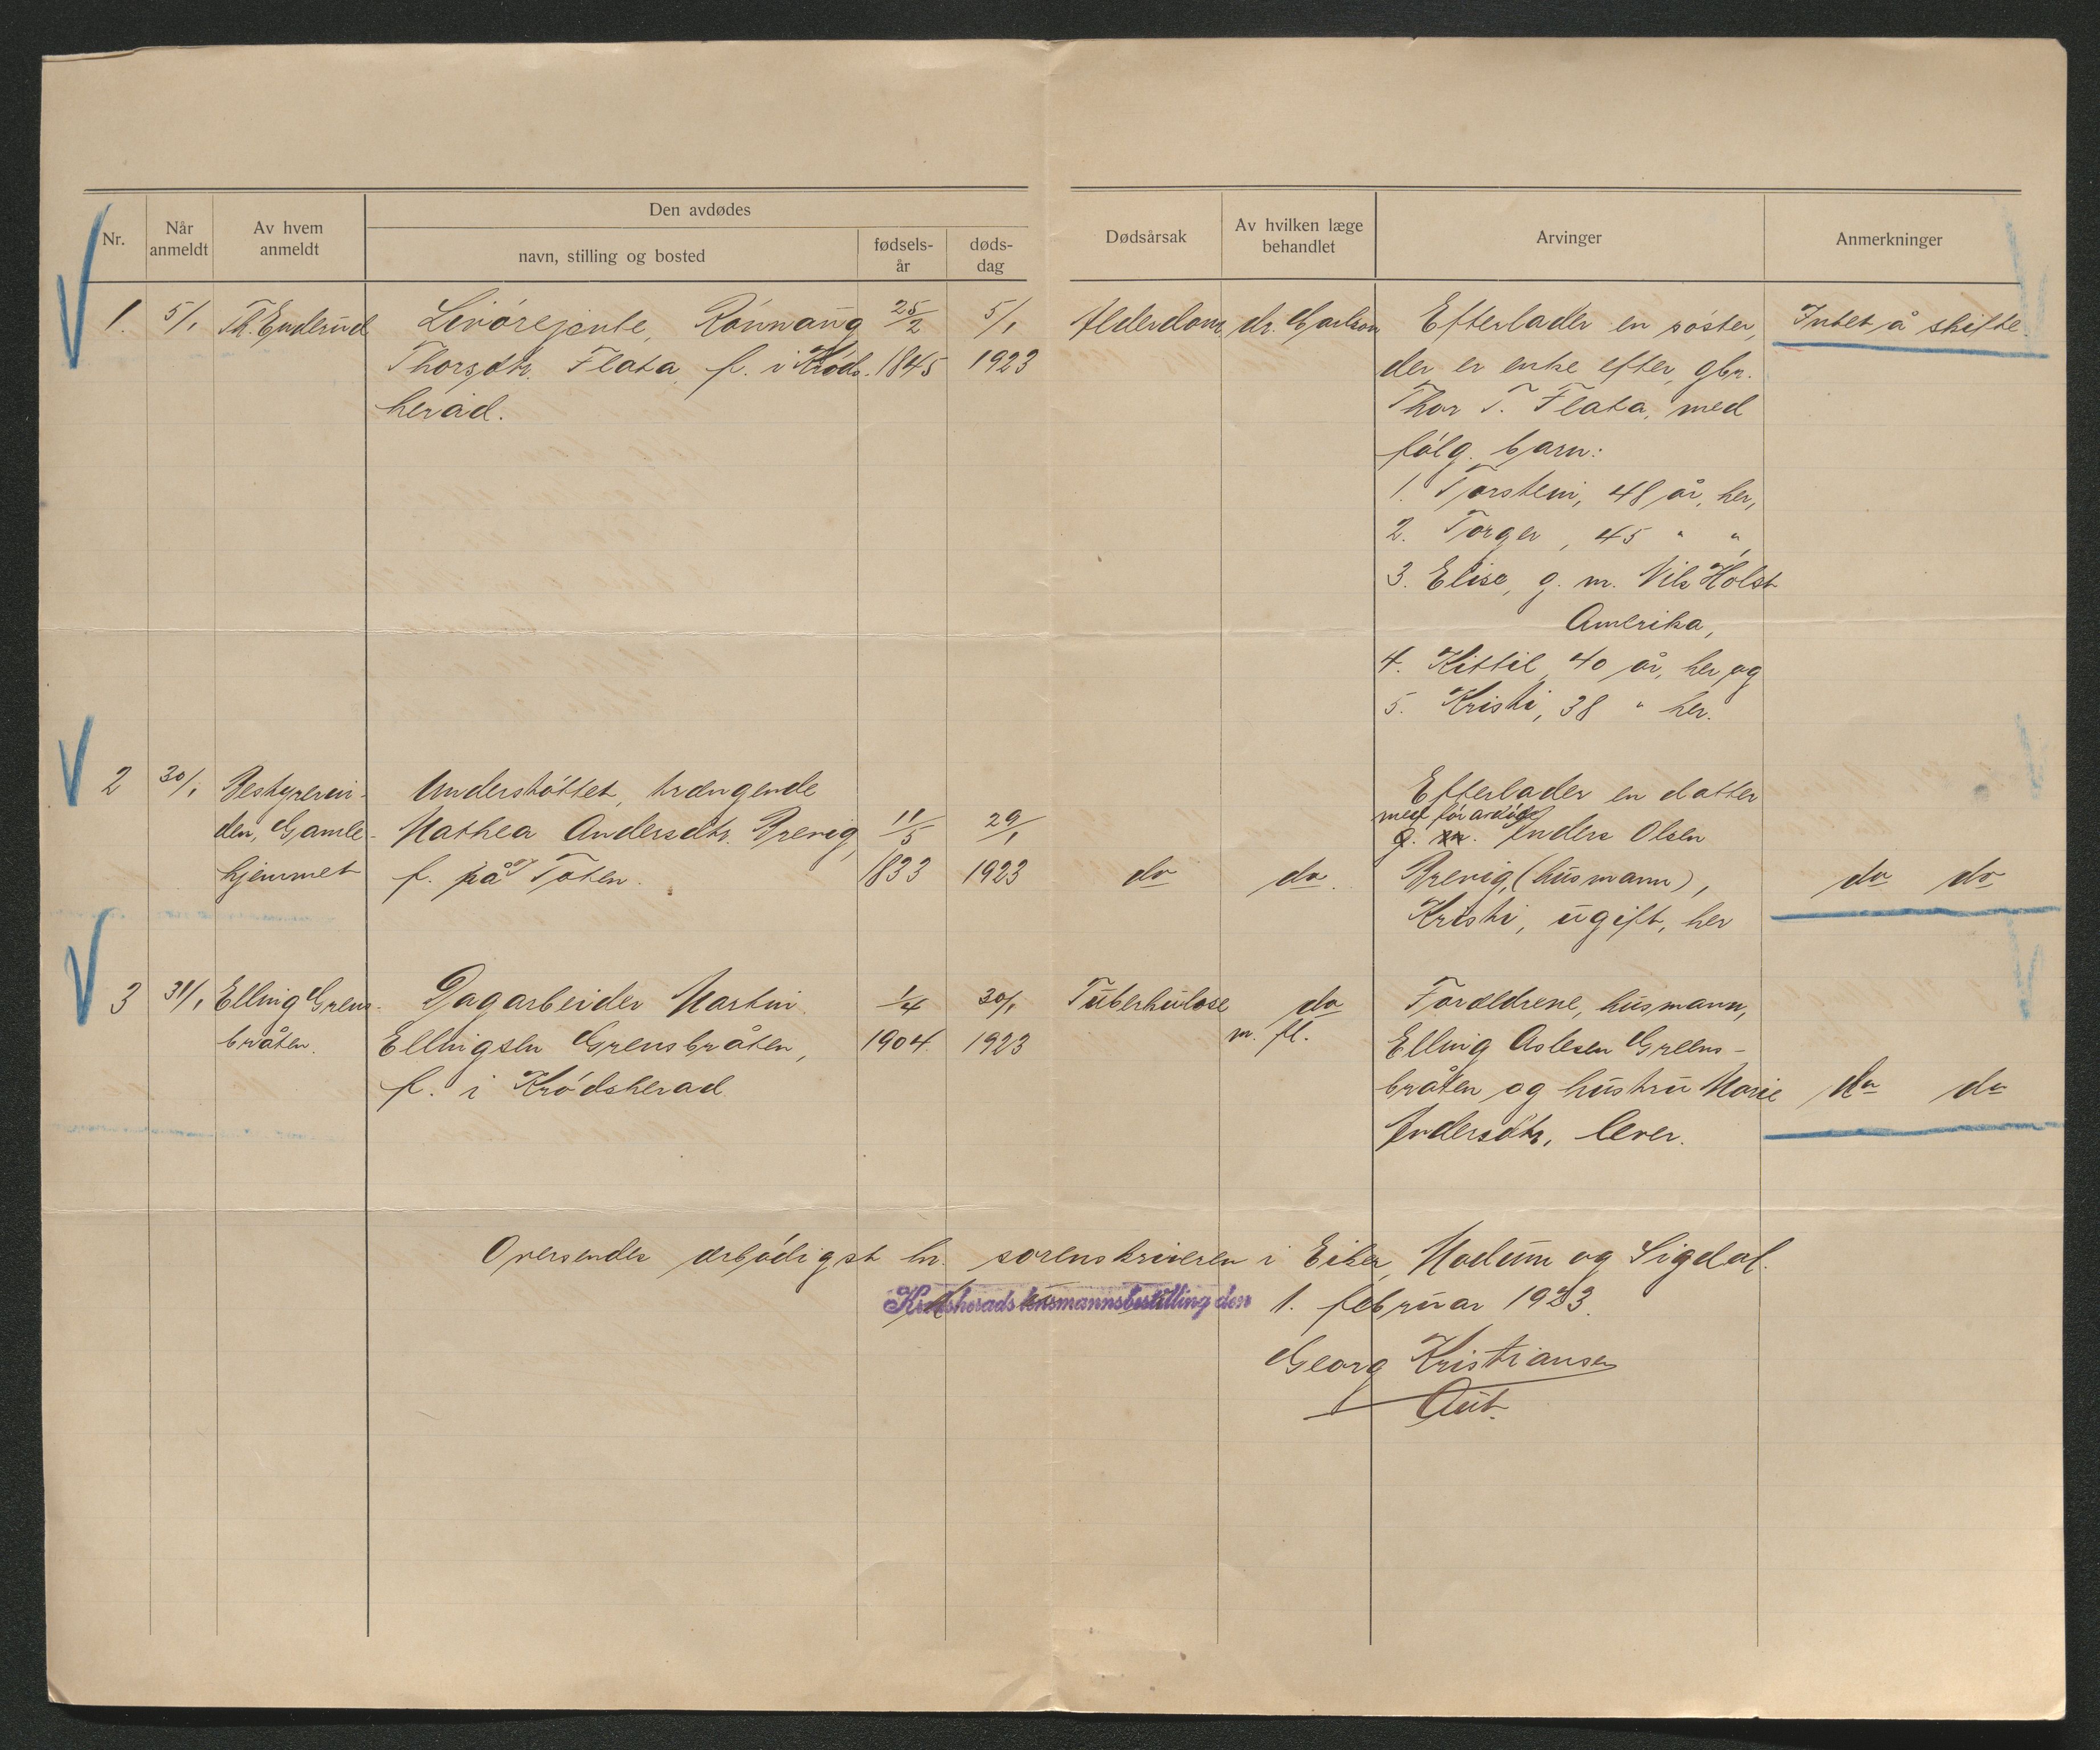 Den avdødes
Nr.
Når anmeldt
Av hvem anmeldt
navn, stilling og bosted
fødsels-år
døds-dag
Dødsårsak
Av hvilken læge behandlet
Arvinger
Anmerkninger
1. 5/1 Th. Enderud Livörejente, Rönnaug 25/2 5/1 Alderdom, dr. Carlson Efterlader en söster, Intet å skifte.
Thorsdtr. Flata, f. i Kröds- 1845 1923 der er enke efter gbr.
herad. Thor T. Flata, med
fölg. barn:
1. Torstein, 48 år, her,
2. Torger, 45 " "
3. Elise, g. m. Nils Holst
Amerika,
4. Kittil 40 år, her og
5. Kristi, 38 " her.
2 30/1 Bestyrerin- Understöttet, trængende Efterlader en datter
med för avdöde
den, Gamle- Mathea Andersdtr. Brevig, 11/5 29/1 g. m. Anders Olsen
hjemmet f. på Toten. 1833 1923 do do. Brevig, (husmann), do do
Kristi, ugift, her
3 31/1 Elling Grens- Dagarbeider Martin 1/4 30/1 Tuberkulose do Forældrene, husmann,
bråten. Ellingsen Grensbråten, 1904 1923 m. fl. Elling Aslesen Greens-
f. i Krödsherad bråten og hustru Marie do do
Andersdtr, lever.
Oversendes ærbödigst hr. sorenskriveren i Eiker, Modum og Sigdal.
Krødsherads lensmannsbestilling den 1. februar 1923.
Georg Kristiansen
Aut.